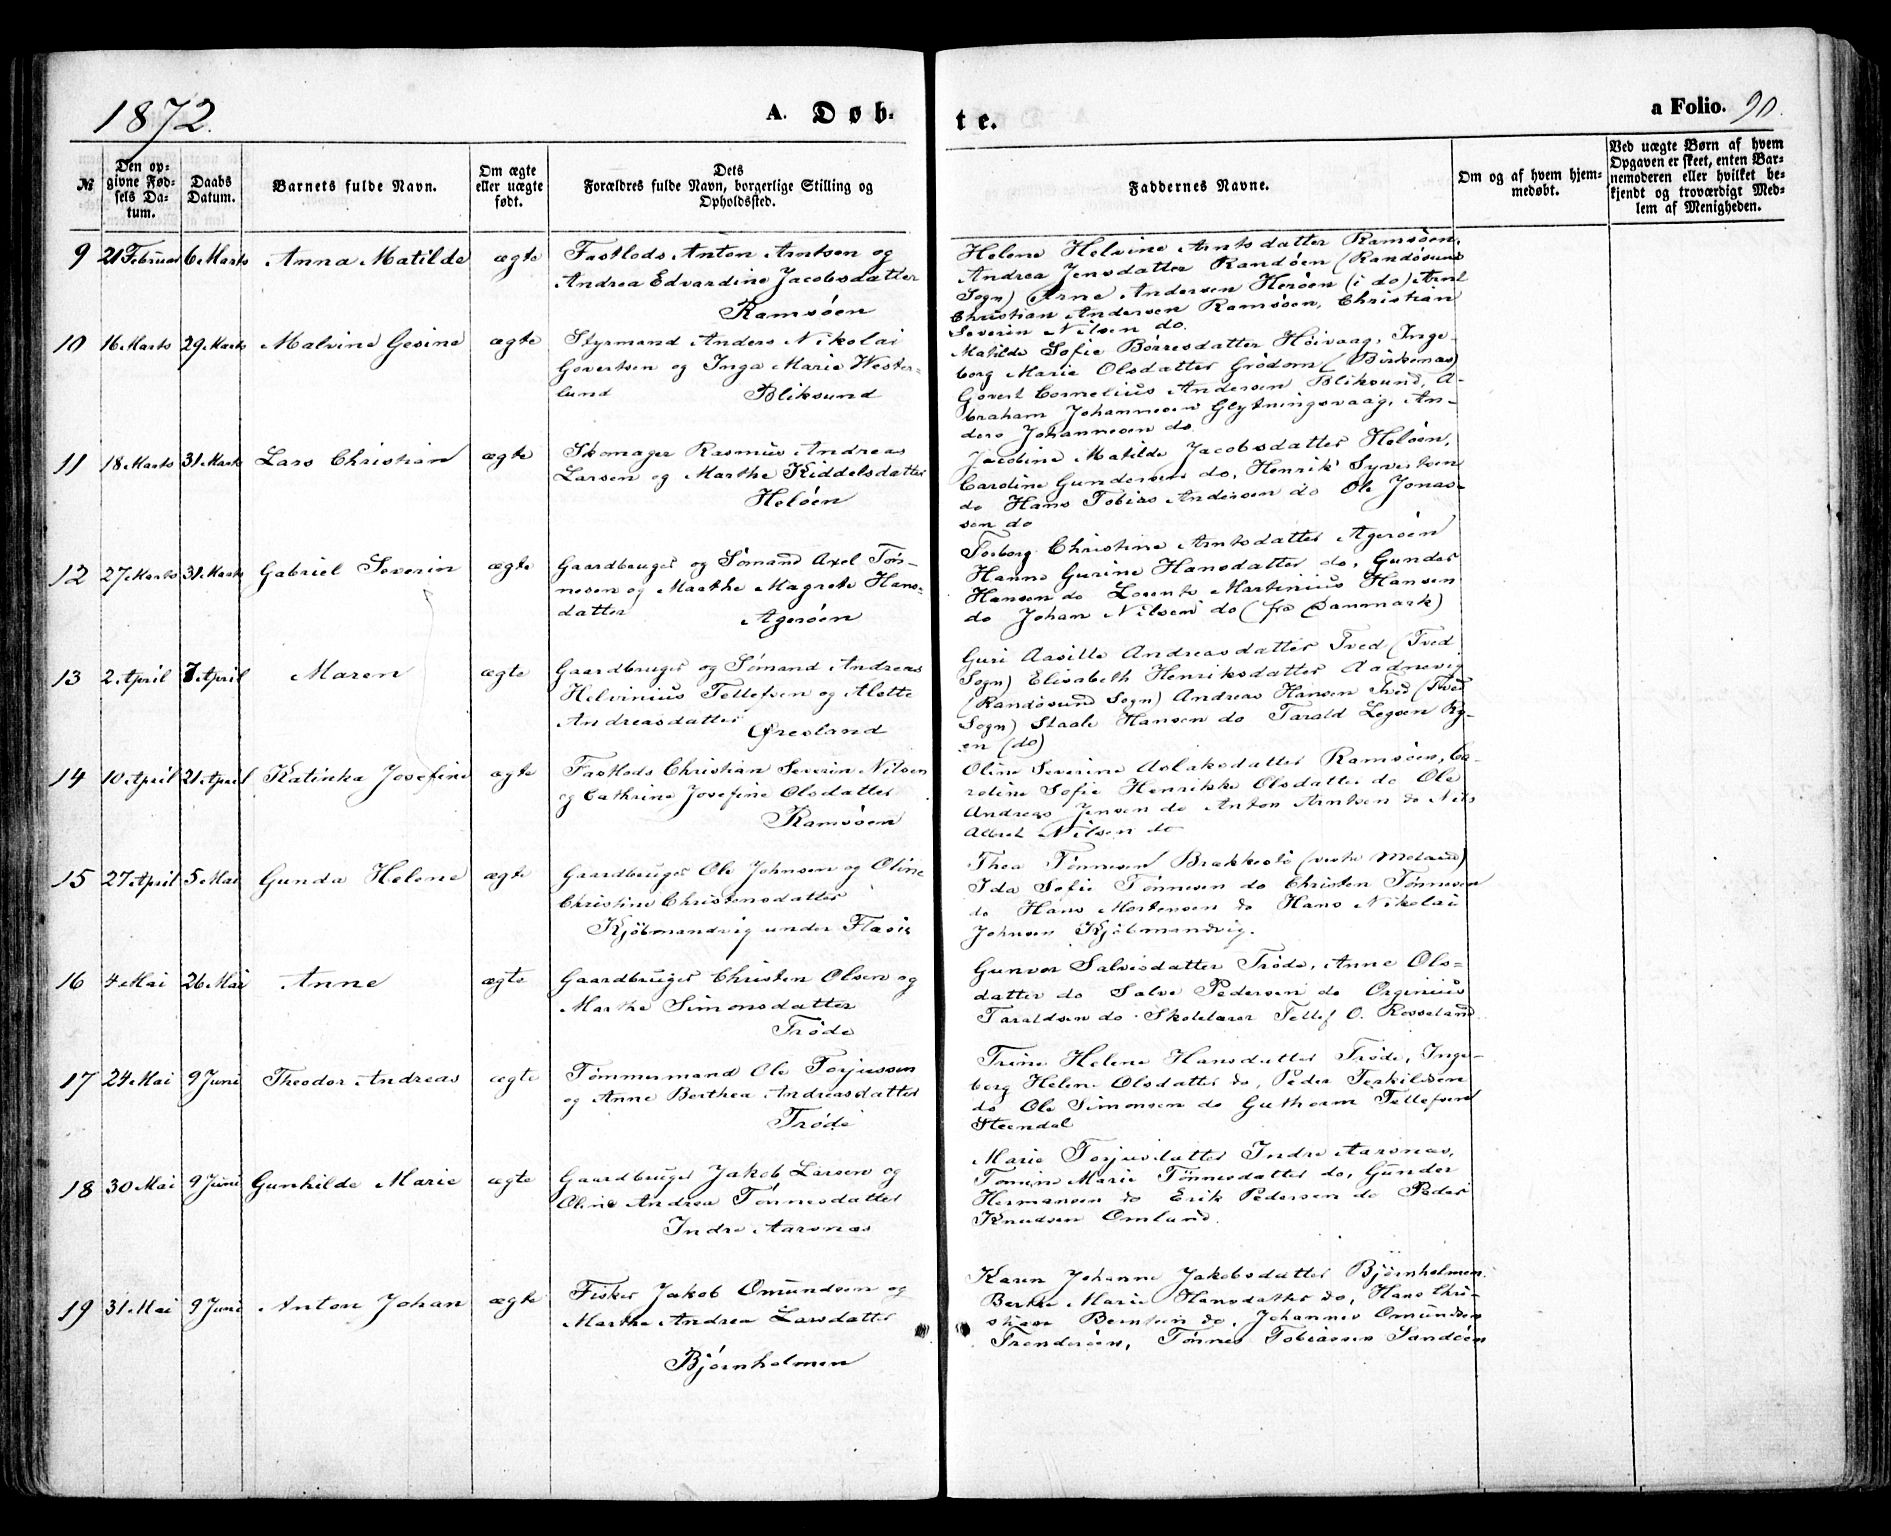 1872.
A. Døb-
te.
a Folio. 90.
№
Den op-
givne Fød-
sels Da-
tum.
Daabs
Datum.
Barnets fulde Navn.
Om ægte
eller uægte
født.
Dets
Forældres fulde Navn, borgerlige Stilling og
Opholdssted.
Faddernes Navne.
Om og af hvem hjem-
medøbt.
Ved uægte Børn af hvem
Opgaven er skeet, enten Bar-
nemoderen eller hvilket be-
kjendt og troværdigt Med-
lem af Menigheden.
9 21 Februar 6 Marts Anna Matilde ægte
Fastlods Anton Arntsen og
Andrea Edvardine Jacobsdatter
Ramsöen
Helene Helvine Arntsdatter Ramsöen,
Andrea Jensdatter Randöen (Randösund
Sogn) Arne Andersen Heröen (i do) Arnt
Christian Andersen Ramsöen, Christian
Severin Nilsen do.
10 16 Marts 29 Marts Malvine Gesine ægte
Styrmand Anders Nikolai
Govertsen og Inga Marie Wester-
lund Bliksund
Matilde Sofie Börresdatter Höivaag, Inge-
borg Marie Olsdatter Grödom (Birkenæs)
Govert Cornelius Andersen Bliksund, A-
braham Johannesen Glytningsvaag, An-
ders Johannesen do
11 18 Marts 31 Marts Lars Christian ægte
Skomager Rasmus Andreas
Larsen og Marthe Kiddelsdatter
Helöen
Jacobine Matilde Jacobsdatter Helöen,
Caroline Gundersen do, Henrik Syvertsen
do Hans Tobias Andersen do Ole Jonas-
sen do
12 27 Marts 31 Marts Gabriel Severin ægte
Gaardbruger og Sömand Axel Tön-
nesen og Marthe Magrete Hans-
datter Ageröen
Torborg Christine Arntsdatter Ageröen
Hanne Gurine Hansdatter do, Gunder
Hansen do Lorents Martinius Hansen
do Johan Nilsen do (fra Danmark)
13 2 April 7 April Maren ægte
Gaardbruger og Sömand Andreas
Helvinius Tellefsen og Alette
Andreasdatter Øresland
Guri Aasille Andreasdatter Tved (Tved
Sogn) Elisabeth Henriksdatter Aadnevig
(Randösund Sogn) Andreas Hansen Tved (Tved
Sogn) Staale Hansen do Tarald Legsen Ry-
en (do)
14 10 April 21 April Katinka Josefine ægte
Fastlods Christian Severin Nilsen
og Cathrine Josefine Olsdatter
Ramsöen
Oline Severine Aslaksdatter Ramsöen, Ca-
roline Sofie Henrikke Olsdatter do Ole
Andreas Jensen do Anton Arntsen do Nils
Albret Nilsen do
15 27 April 5 Mai Gunda Helene ægte
Gaardbruger Ole Johnsen og Oline
Christine Christensdatter
Kjöbmandvig under Flasie
Thea Tönnesen Brækkestö (vestre Moland)
Ida Sofie Tönnesen do Christen Tönnesen
do Hans Mortensen do Hans Nikolai
Johnsen Kjöbmandvig.
16 4 Mai 26 Mai Anne ægte
Gaardbruger Christen Olsen og
Marthe Simonsdatter
Tröde
Gunvor Salvisdatter Tröde, Anne Ols-
datter do Salve Pedersen do Orgenius
Taraldsen do Skolelærer Tellef O. Rosseland
17 24 Mai 9 Juni Theodor Andreas ægte
Tömmermand Ole Torjussen
og Anne Berthea Andreasdatter
Tröde
Trine Helene Hansdatter Tröde, Inge-
borg Helene Olsdatter do, Peder Terkildsen
do Ole Simonsen do Guthorm Tellefsen
Steendal
18 30 Mai 9 Juni Gunhilde Marie ægte
Gaardbruger Jakob Larsen og
Oline Andrea Tönnesdatter
Indre Aarsnæs
Marie Torjusdatter Indre Aarsnæs,
Tomine Marie Tönnesdatter do, Gunder
Hermansen do Erik Pedersen do Peder
Knudsen Omland.
19 31 Mai 9 Juni Anton Johan ægte
Fisker Jakob Omundsen og
Marthe Andrea Larsdatter
Björnholmen
Karen Johanne Jakobsdatter Björnholmen
Berthe Marie Hansdatter do, Hans Chri-
stian Berntsen do, Johannes Omundsen
Trenderöen, Tönnes Tobiassen Sandöen